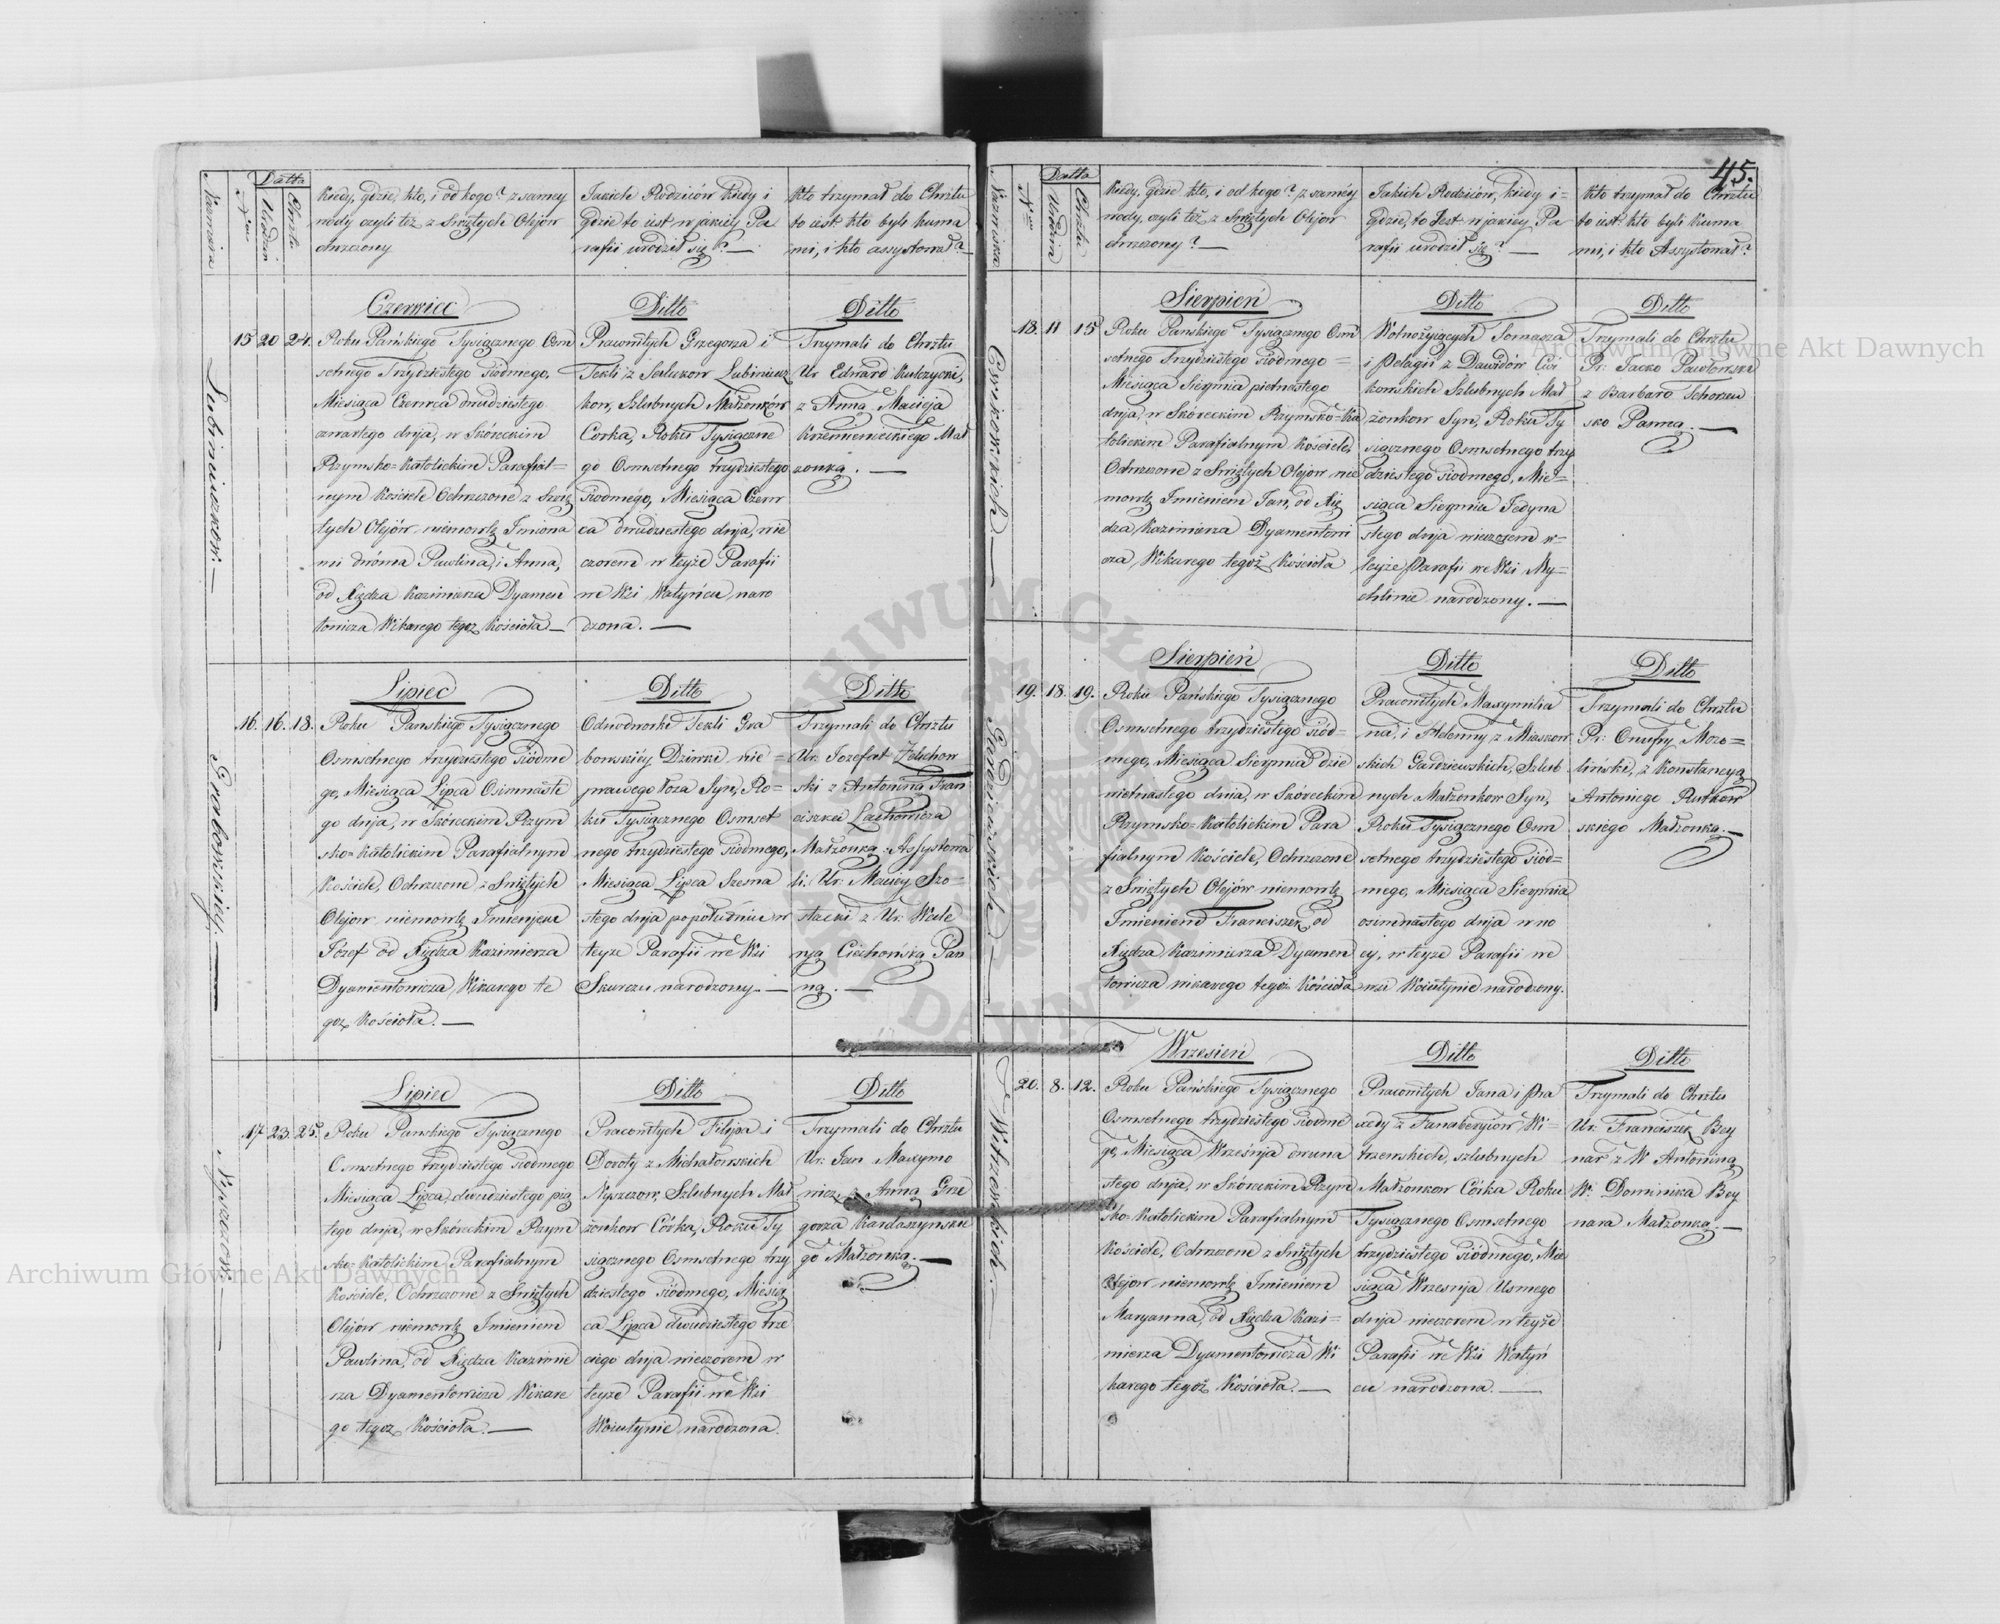 Nazwiska
Nrm
Datta
Urodzin
Chrztu
Kiedy, gdzie, kto, i od kogo? z samey
wody czyli też z Swiętych Olejów
chrzczony
Jakich Rodziców kiedy i
gdzie to iest w jakiéy Pa
rafii urodził się? —
Kto trzymał do Chrztu
to iest: kto byli kuma
mi, i kto assystował? —
Lubiniczkow. —
15 20 24.
Czerwiec
Roku Pańskiego Tysiącznego Osm
setnego Trzydziestego siódmego,
Miesiąca Czerwca dwudziestego
czwartego dnja, w Skóreckim
Rzymsko=Katolickim Parafial=
nym Kościele Ochrzczone z Swię
tych Olejów niemowlę Imiona
mi dwóma Pawlina, i Anna,
od Xiędza Kazimierza Dyamen
towicza Wikarego tegoż Kościoła —
Ditto
Pracowitych Grzegorza i
Tekli z Lubinicz
kow, Szlubnych Małżonków
Corka, Roku Tysiączne
go Osmsetnego trzydziestego
siodmego, Miesiąca Czerw
ca dwudziestego dnja, wie
czorem w teyże Parafii
we Wsi Wołyńcu naro
dzona. —
Ditto
Trzymali do Chrztu
Ur: Edward Kulczycki,
z Anną Macieja
Krzemienieckiego Mał
zonką. —
Grabowskiej. —
16. 16. 18.
Lipiec
Roku Panskiego Tysiącznego
Osmsetnego trzydziestego siódme
go, Miesiąca Lipca Osimnaste
go dnja, w Skóreckim Rzym
sko=Katolickim Parafialnym
Kościele, Ochrzczone z Swiętych
Olejow niemowlę Imienjem
Józef od Xiędza Kazimierza
Dyamentowicza, Wikarego te
goż Kościoła. —
Ditto
Odwdworki Tekli Gra
bowskiéy Dziwki nie=
prawego łoza Syn, Ro=
ku Tysiącznego Osmset
nego trzydziestego siódmego,
Miesiąca Lipca Szesna
stego dnja popołudniu w
teyże Parafii we Wsi
Skurczu narodzony. —
Ditto
Trzymali do Chrztu
Ur: Jozefat Zelichow
ski z Antoniną Fran
ciszka Lachowicza
Małżonką. Assystowa
li: Ur: Maciey Szo=
stacki z Ur: Wale
ryą Ciechońską Pan
ną. —
Nyszczow. —
17 23. 25.
Lipiec
Roku Panskiego Tysiącznego
Osmsetnego trzydziestego siodmego
Miesiąca Lipca, dwudziestego pią
tego dnja, w Skóreckim Rzym
sko=Katolickim Parafialnym
Kościele, Ochrzczone z Swiętych
Olejów niemowlę Imieniem
Pawlina, od Xiędza Kazimie
rza Dyamentowicza Wikare
go tegoż Kościoła. —
Ditto
Pracowitych Filipa i
Doroty z Michałowskich
Nyszczow, Szlubnych Mał
żonkow Córka, Roku Ty
siącznego Osmsetnego trzy
dziestego siódmego, Miesią
ca Lipca dwudziestego trze
ciego dnja wieczorem w
teyże Parafii we Wsi
Woiułynie narodzona.
Ditto
Trzymali do Chrztu
Ur: Jan Maxymo
wicz, z Anną Grze
gorza Kardaszynskie
go Małżonką. —
45.
Nazwiska
Nrm
Datta
Urodzin
Chrztu
Kiedy, gdzie kto, i od kogo? z saméy
wody, czyli też z Swiętych Olejów
chrzczony? —
Jakich Rodziców, kiedy i=
gdzie, to Jest w jakiéy Pa
rafii urodził się? —
Kto trzymał do Chrztu
to iest: kto byli Kuma
mi, i kto Assystował?
Cwikowskich —
18. 11 15
Sierpień
Roku Pańskiego Tysiącznego Osm
setnego Trzydziestego siodmego =
Miesiąca Sierpnia piętnastego
dnja, w Skóreckim Rzymsko=Ka
tolickim Parafialnym Kościele,
Ochrzczone z Swiętych Olejow nie
mowlę Imieniem Jan, od Xię
dza Kazimierza Dyamentowi
cza Wikarego tegoż Kościoła
Ditto
Wolnożyjących Tomasza
i Pelagii z Dawidów Cwi
kowskich Szlubnych Mał
żonkow Syn, Roku Ty
siącznego Osmsetnego trzy
dziestego siodmego, Mie=
siąca Sierpnia Jedyna
stego dnja wieczorem w=
teyże Parafii we Wsi My=
chlinie narodzony. —
Ditto
Trzymali do Chrztu
Pr: Jacko Pawłowski
z Barbarą Schorzew
sko Panną. —
Gardziewskich —
19. 18. 19.
Sierpień
Roku Pańskiego Tysiącznego
Osmsetnego trzydziestego siód=
mego, Miesiąca Sierpnia dzie
wietnastego dnia, w Skóreckim
Rzymsko=Katolickim Para
fialnym Kościele, Ochrzczone
z Swiętych Olejów niemowlę
Imieniem Franciszek, od
Xiędza Kazimierza Dyamen
towicza wikarego tegoż Kościoła
Ditto
Pracowitych Maxymilia
na, i Helenny z Miaszow
skich Gardziewskich, Szlub
nych Małżonkow Syn,
Roku Tysiącznego Osm
setnego trzydziestego siód=
mego, Miesiąca Sierpnia
osimnastego dnja w no
cy, w teyże Parafii we
wsi Woiułynie narodzony.
Ditto
Trzymali do Chrztu
Pr: Onufry Mozo=
liński, z Konstancyą
Antoniego Rutkow
skiego Małżonką. —
Witrzewskich. —
20. 8. 12.
Wrzesień
Roku Pańskiego Tysiącznego
Osmsetnego trzydziestego siodme
go, Miesiąca Wrześnja dwuna
stego dnja, w Skóreckim Rzym
sko=Katolickim Parafialnym
Kościele, Ochrzczone z Swiętych
Olejow niemowlę Imieniem
Maryanna, od Xiędza Kazi=
mierza Dyamentowicza Wi
karego tegoż Kościoła. —
Ditto
Pracowitych Jana i Pra
xedy z Fanabergiow Wi=
trzewskich, szlubnych
Małżonkow Córka Roku
Tysiącznego Osmsetnego
trzydziestego siódmego, Mie
siąca Wrzesnja Usmego
dnja wieczorem w teyże
Parafii we Wsi Wołyń
cu narodzona. —
Ditto
Trzymali do Chrztu
Ur: Franciszek Bey
nar z W Antoniną
W: Dominika Bey
nara Małżonką. —
Archiwum Główne Akt Dawnych
Archiwum Główne Akt Dawnych
ARCHIWUM GŁÓWNE AKT DAWNYCH